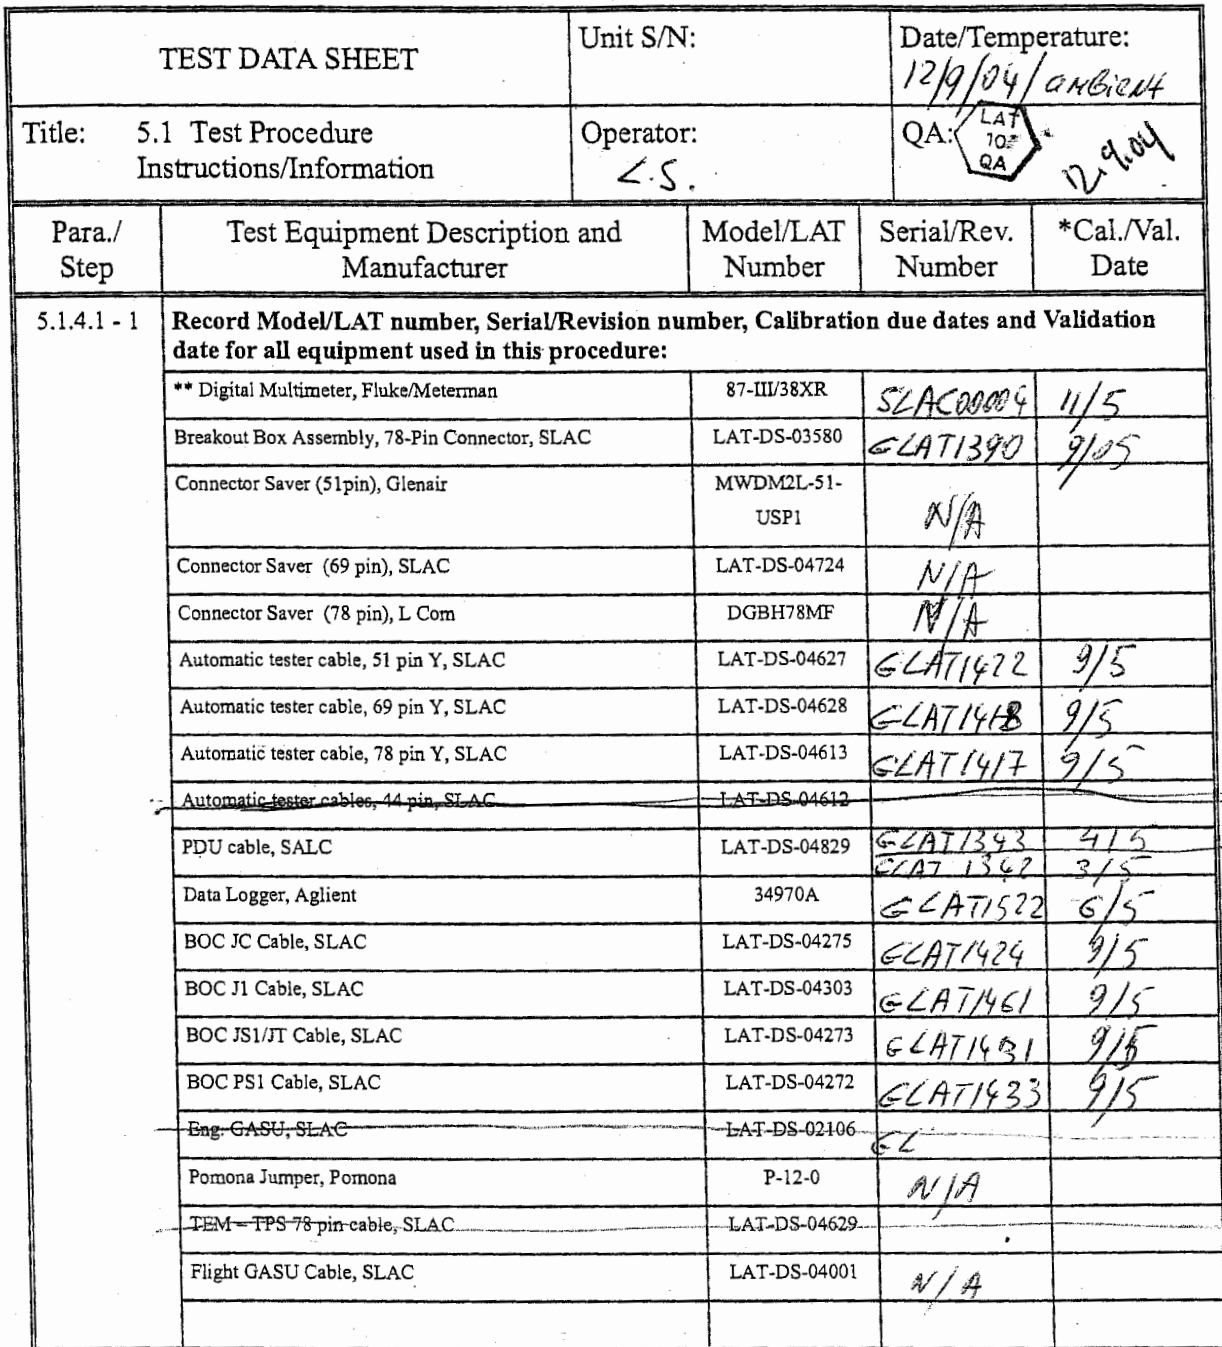 TEST DATA SHEET
Unit S/N:
Date/Temperature:
12/9/04/ ambient
Title: 5.1 Test Procedure
Instructions/Information
Operator:
L.S.
QA:
LAT
QA
12.9.04
Para./
Step
Test Equipment Description and
Manufacturer
Model/LAT
Number
Serial/Rev.
Number
*Cal./Val.
Date
5.1.4.1 - 1
Record Model/LAT number, Serial/Revision number, Calibration due dates and Validation
date for all equipment used in this procedure:
** Digital Multimeter, Fluke/Meterman 87-III/38XR SLAC00004 11/5
Breakout Box Assembly, 78-Pin Connector, SLAC LAT-DS-03580 GLAT1390 9/05
Connector Saver (51pin), Glenair MWDM2L-51-
USP1 N/A
Connector Saver (69 pin), SLAC LAT-DS-04724 N/A
Connector Saver (78 pin), L Com DGBH78MF N/A
Automatic tester cable, 51 pin Y, SLAC LAT-DS-04627 GLAT1422 9/5
Automatic tester cable, 69 pin Y, SLAC LAT-DS-04628 GLAT1418 9/5
Automatic tester cable, 78 pin Y, SLAC LAT-DS-04613 GLAT1417 9/5
Automatic tester cables, 44 pin, SLAC LAT-DS-04612
PDU cable, SALC LAT-DS-04829 GLAT1343 4/5
GLAT 1342 3/5
Data Logger, Aglient 34970A GLAT1522 6/5
BOC JC Cable, SLAC LAT-DS-04275 GLAT1424 9/5
BOC J1 Cable, SLAC LAT-DS-04303 GLAT1461 9/5
BOC JS1/JT Cable, SLAC LAT-DS-04273 GLAT1431 9/5
BOC PS1 Cable, SLAC LAT-DS-04272 GLAT1433 9/5
Eng. GASU, SLAC LAT-DS-02106 GL
Pomona Jumper, Pomona P-12-0 N/A
TEM – TPS 78 pin cable, SLAC LAT-DS-04629
Flight GASU Cable, SLAC LAT-DS-04001 N/A